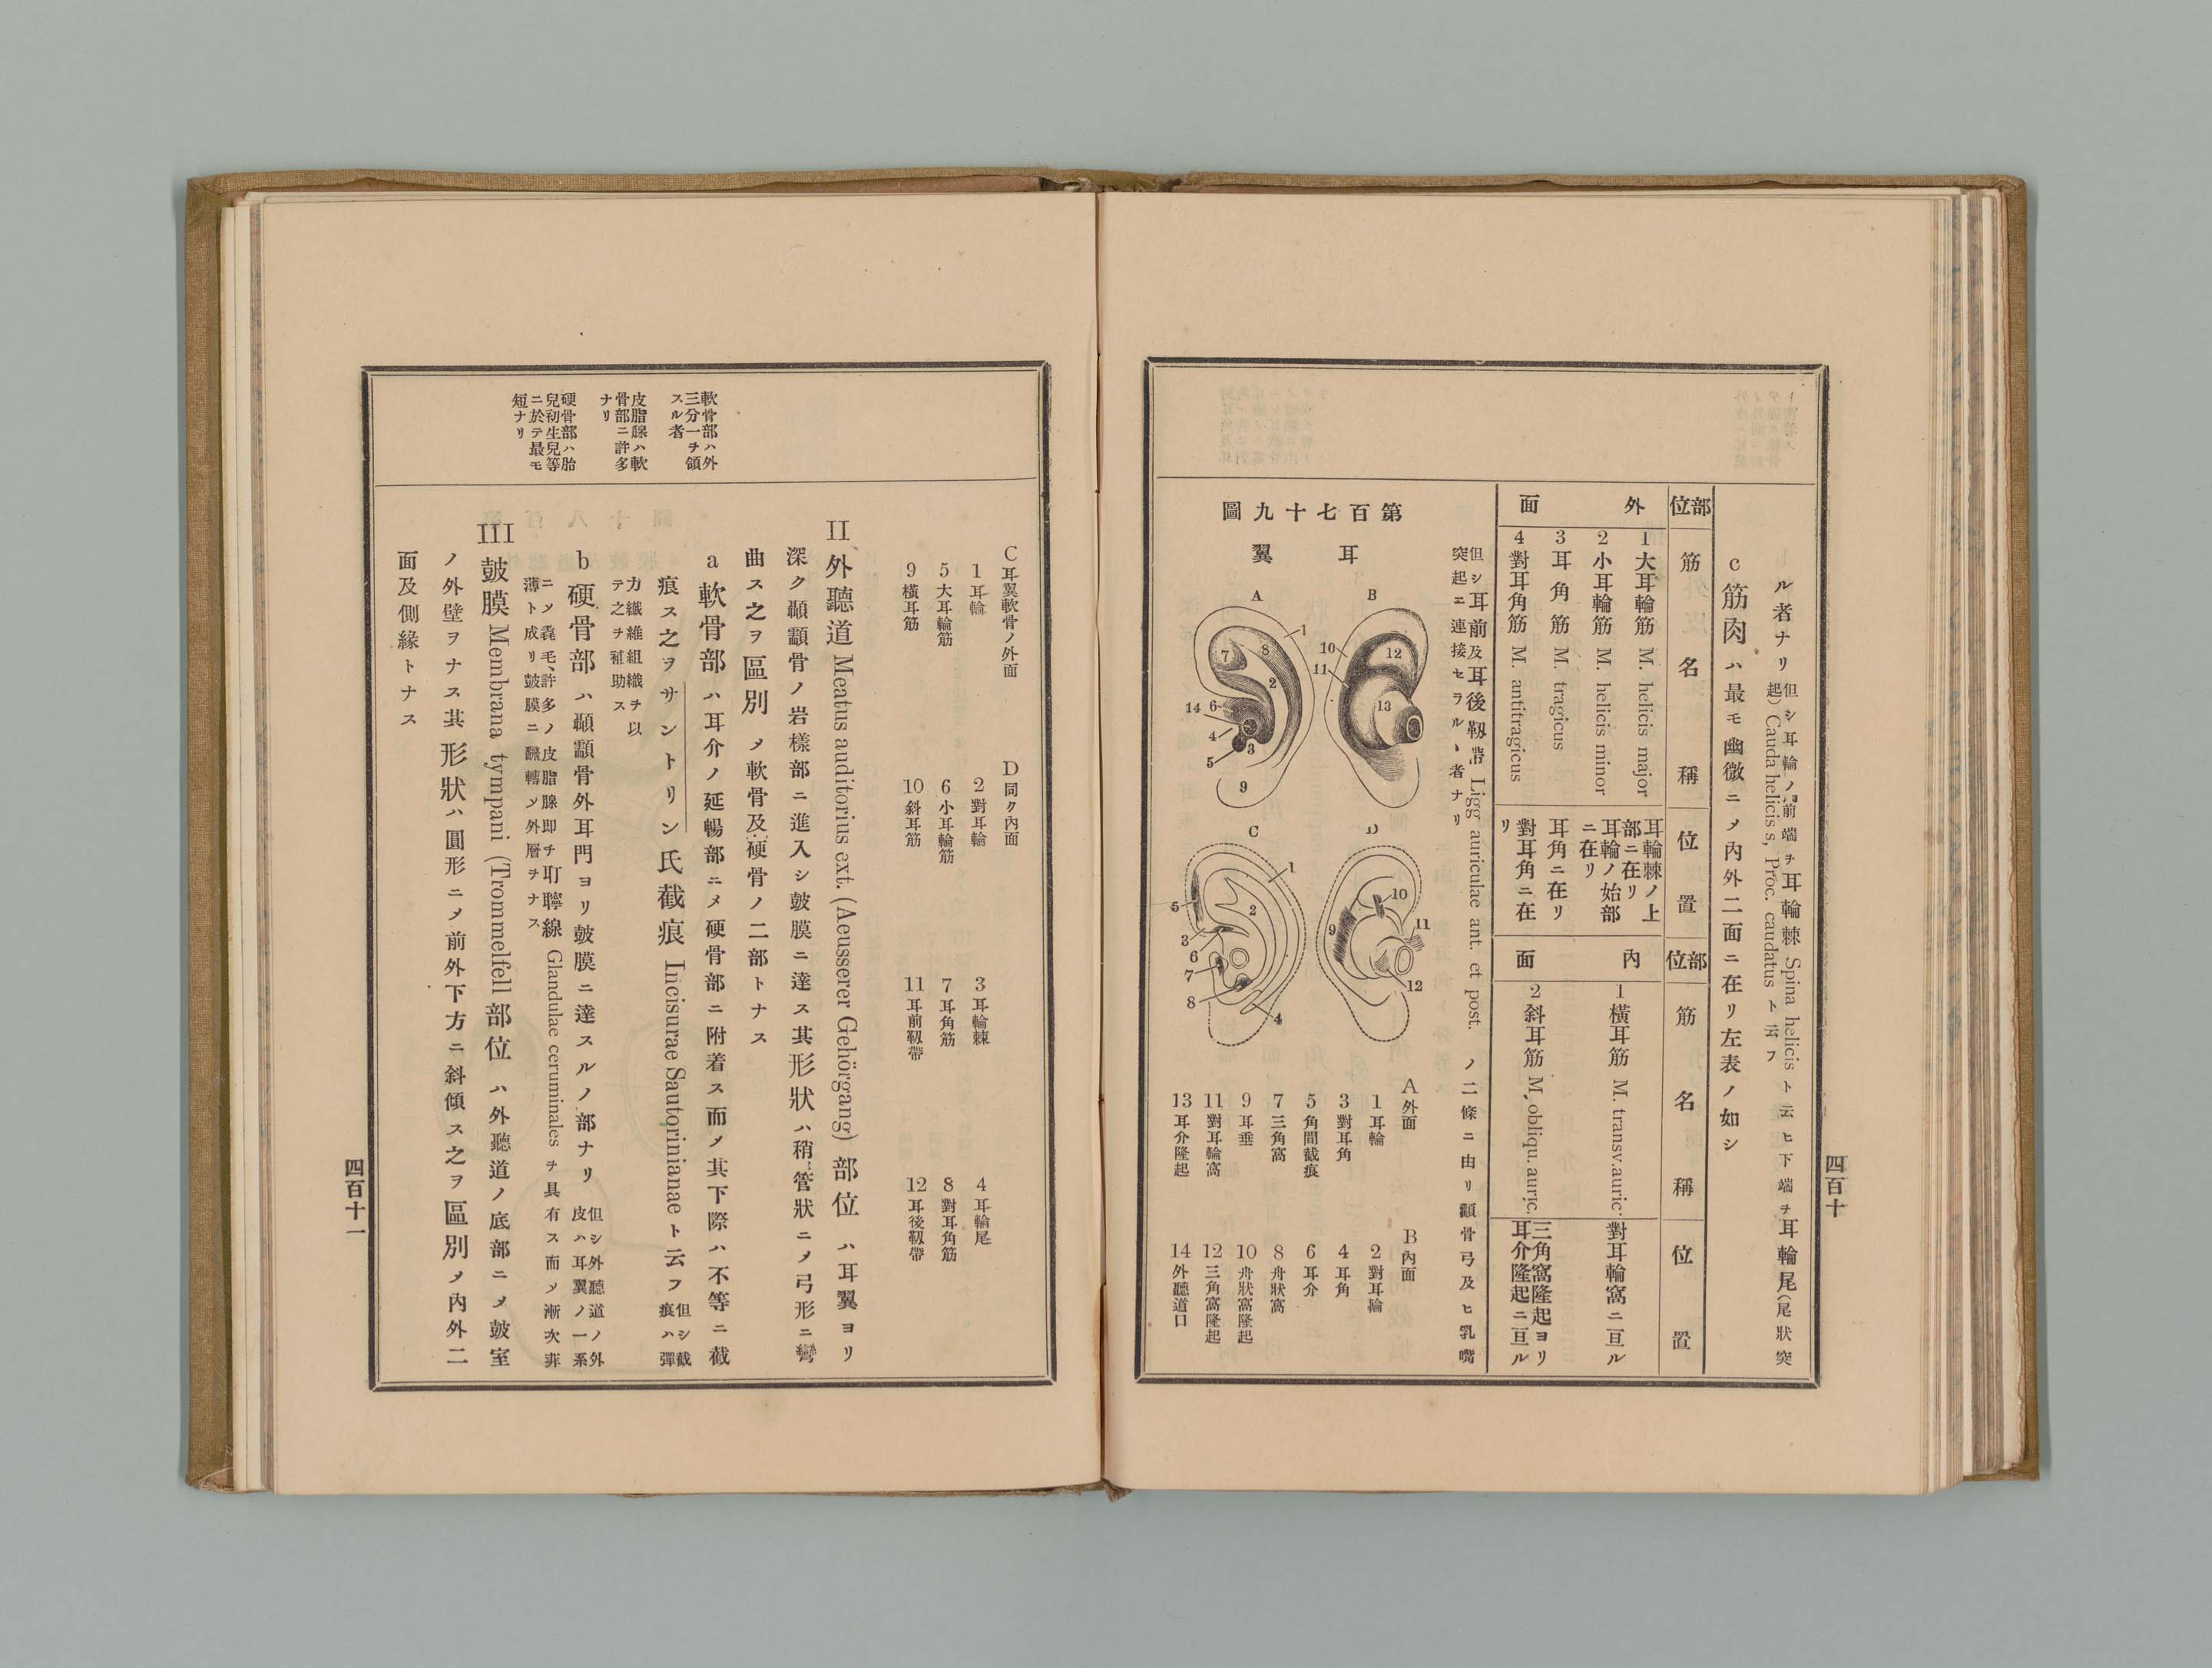 四百十
ル者ナリ
但シ耳輪ノ前端ヲ耳輪棘 Spina helicis ト云ヒ下端ヲ耳輪尾(尾狀突
起) Cauda helicis s, Proc. caudatus ト云フ
c 筋肉ハ最モ幽微ニㇱテ内外二面ニ在リ左表ノ如シ
部位
筋名稱
位置
部位
筋名稱
位置
外面
1 大耳輪筋 M. helicis major
耳輪棘ノ上部ニ在リ
2 小耳輪筋 M. helicis minor
耳輪ノ始部ニ在リ
3 耳角筋 M. tragicus
耳角ニ在リ
4 對耳角筋 M. antitragicus
對耳角ニ在リ
內面
1 橫耳筋 M. transv. auric.
對耳輪窩ニ亘ル
2 斜耳筋 M. obliqu. auric.
三角窩隆起ヨリ耳介隆起ニ亘ル
但シ耳前及耳後靱帶 Ligg auriculae ant. et post. ノ二條ニ由リ顴骨弓及ヒ乳嘴
突起ニ連接セラルヽ者ナリ
第百七十九圖
耳翼
A
B
C
D
A 外面
B 內面
1 耳輪
2 對耳輪
3 對耳角
4 耳角
5 角間截痕
6 耳介
7 三角窩
8 舟狀窩
9 耳垂
10 舟狀窩隆起
11 對耳輪窩
12 三角窩隆起
13 耳介隆起
14 外聽道口
C 耳翼軟骨ノ外面
D 同ク內面
1 耳輪
2 對耳輪
3 耳輪棘
4 耳輪尾
5 大耳輪筋
6 小耳輪筋
7 耳角筋
8 對耳角筋
9 橫耳筋
10 斜耳筋
11 耳前靱帶
12 耳後靱帶
II 外聽道 Meatus auditorius ext. (Aeusserer Gehörgang) 部位ハ耳翼ヨリ
深ク顳顬骨ノ岩樣部ニ進入シ皷膜ニ達ス其形狀ハ稍管狀ニㇱテ弓形ニ彎
曲ス之ヲ區別ㇱテ軟骨及硬骨ノ二部トナス
軟骨部ハ外
三分一ヲ領
スル者
a 軟骨部ハ耳介ノ延暢部ニㇱテ硬骨部ニ附着ス而ㇱテ其下際ハ不等ニ截
痕ス之ヲサントリン氏截痕 Incisurae Sautorinianae ト云フ
但シ截
痕ハ彈
力纖維組織ヲ以
テ之ヲ補助ス
皮脂腺ハ軟
骨部ニ許多
ナリ
b 硬骨部ハ顳顬骨外耳門ヨリ皷膜ニ達スルノ部ナリ
但シ外聽道ノ外
皮ハ耳翼ノ一系
ニㇱテ毳毛、許多ノ皮脂腺即チ耵聹線 Glandulae ceruminales ヲ具有ス而ㇱテ漸次菲
薄ト成リ皷膜ニ飜轉ㇱテ外層ヲナス
硬骨部ハ胎
兒初生兒等
ニ於テ最モ
短ナリ
III 皷膜 Membrana tympani (Trommelfell 部位ハ外聽道ノ底部ニㇱテ皷室
ノ外壁ヲナス其形狀ハ圓形ニㇱテ前外下方ニ斜傾ス之ヲ區別ㇱテ內外二
面及側緣トナス
四百十一